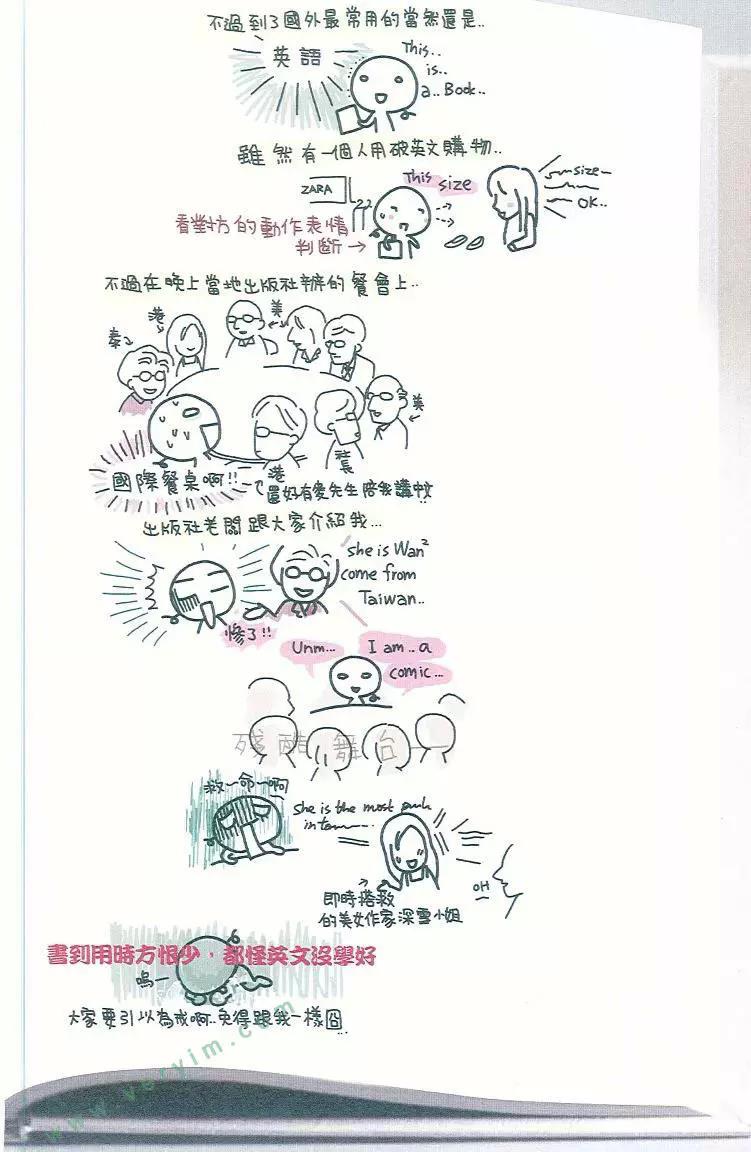 不過到了國外最常用的當然還是..
英語
This..
is..
a.. Book..
雖然有一個人用破英文購物..
ZARA
This size
size
OK..
看對方的動作表情
判斷→
不過在晚上當地出版社辦的餐會上..
港
美
美
社長
港
國際餐桌啊!!
還好有麥先生陪我講中文
出版社老闆跟大家介紹我...
she is Wan²
come from
Taiwan..
慘了!!
Unm...
I am.. a
comic...
殘酷舞台
救一命一啊
she is the most
in
OH
即時搭救
的美女作家深雪小姐
書到用時方恨少，都怪英文沒學好
嗚一
大家要引以為戒啊..免得跟我一樣囧
www.veryim.com